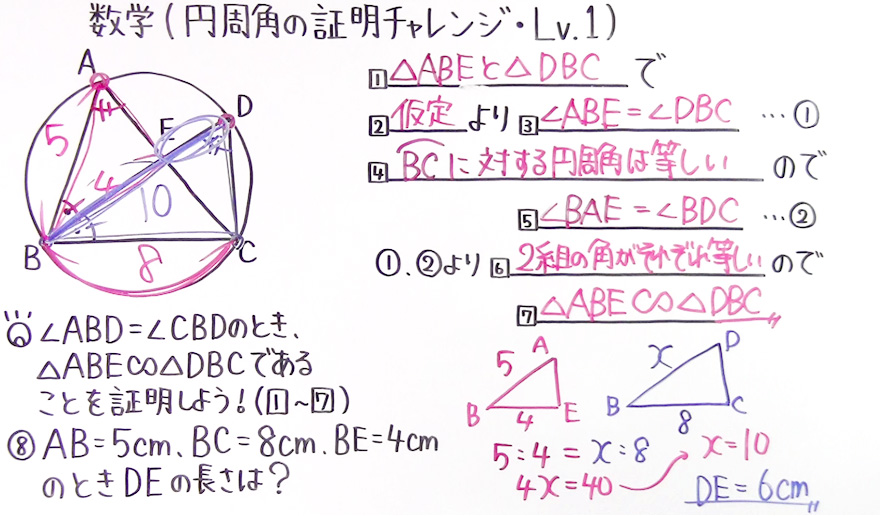 数学(円周角の証明チャレンジ・Lv.1)
A
D
E
5
4
10
B
8
C
1 △ABEと△DBC で
2 仮定 より 3 ∠ABE=∠DBC …①
4 BCに対する円周角は等しい ので
5 ∠BAE=∠BDC …②
①、②より 6 2組の角がそれぞれ等しい ので
7 △ABE∽△DBC
∠ABD=∠CBDのとき、
△ABE∽△DBCである
ことを証明しよう!(1~7)
⑧AB=5cm、BC=8cm、BE=4cm
のときDEの長さは?
5
A
B
4
E
x
D
B
8
C
5:4=x:8
4x=40
x=10
DE=6cm